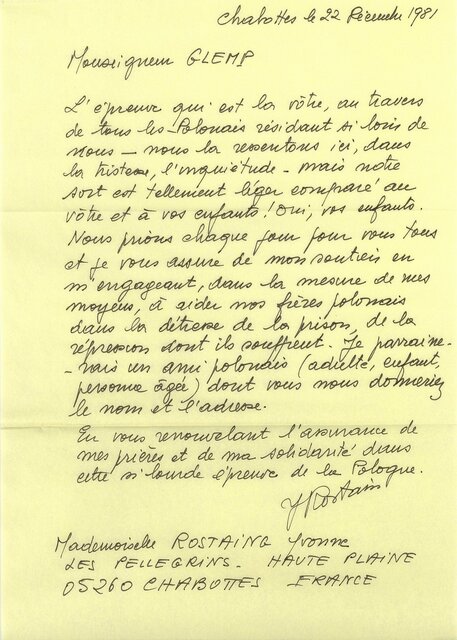 Chabottes le 22 Décembre 1981
Monseigneur GLEMP
L'épreuve qui est la vôtre, au travers
de tous les Polonais résidant si loin de
nous – nous la ressentons ici, dans
la tristesse, l'inquiétude – mais notre
sort est tellement léger comparé au
vôtre et à vos enfants! Oui, vos enfants.
Nous prions chaque jour pour vous tous
et je vous assure de mon soutien en
m'engageant, dans la mesure de mes
moyens, à aider nos frères polonais
dans la détresse de la prison, de la
répression dont ils souffrent. Je parraine-
-rais un ami polonais (adulte, enfant,
personne âgée) dont vous nous donneriez
le nom et l'adresse.
En vous renouvelant l'assurance de
mes prières et de ma solidarité dans
cette si lourde épreuve de la Pologne.
YRostaing
Mademoiselle ROSTAING Yvonne
LES PELLEGRINS - HAUTE PLAINE
05260 CHABOTTES FRANCE